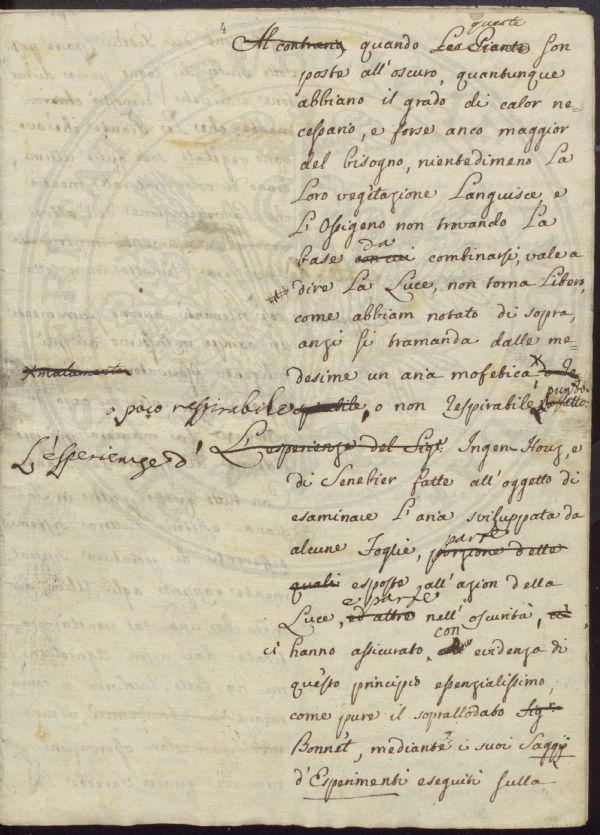 4
queste
Al contrario, quando Les Piante son
poste all'oscuro, quantunque
abbiano il grado di calor ne=
cessario, e forse anco maggior
del bisogno, nientedimeno La
Loro vegetazione Languisce, e
L'Ossigeno non trovando La
da
base con cui combinarsi, vale a
dire La Luce, non torna Libero,
come abbiam notato di sopra,
anzi si tramanda dalle me=
desime un aria mofetica
X malamente
o poco respirabile, o non respirabile
punto
affatto.
L'esperienze d' L'esperienze del Sigr. Ingen-Houz, e
di Senebier fatte all'oggetto di
esaminare L'aria sviluppata da
parte
alcune Foglie, porzione delle
quali esposte all'azion della
e parte
Luce, ed altre nell'oscurità, ci
con
ci hanno assicurato, evidenza di
questo principio essenzialissimo,
come pure il soprallodato Sigr.
Bonnet, mediante i suoi Saggj
d'Esperimenti eseguiti sulla